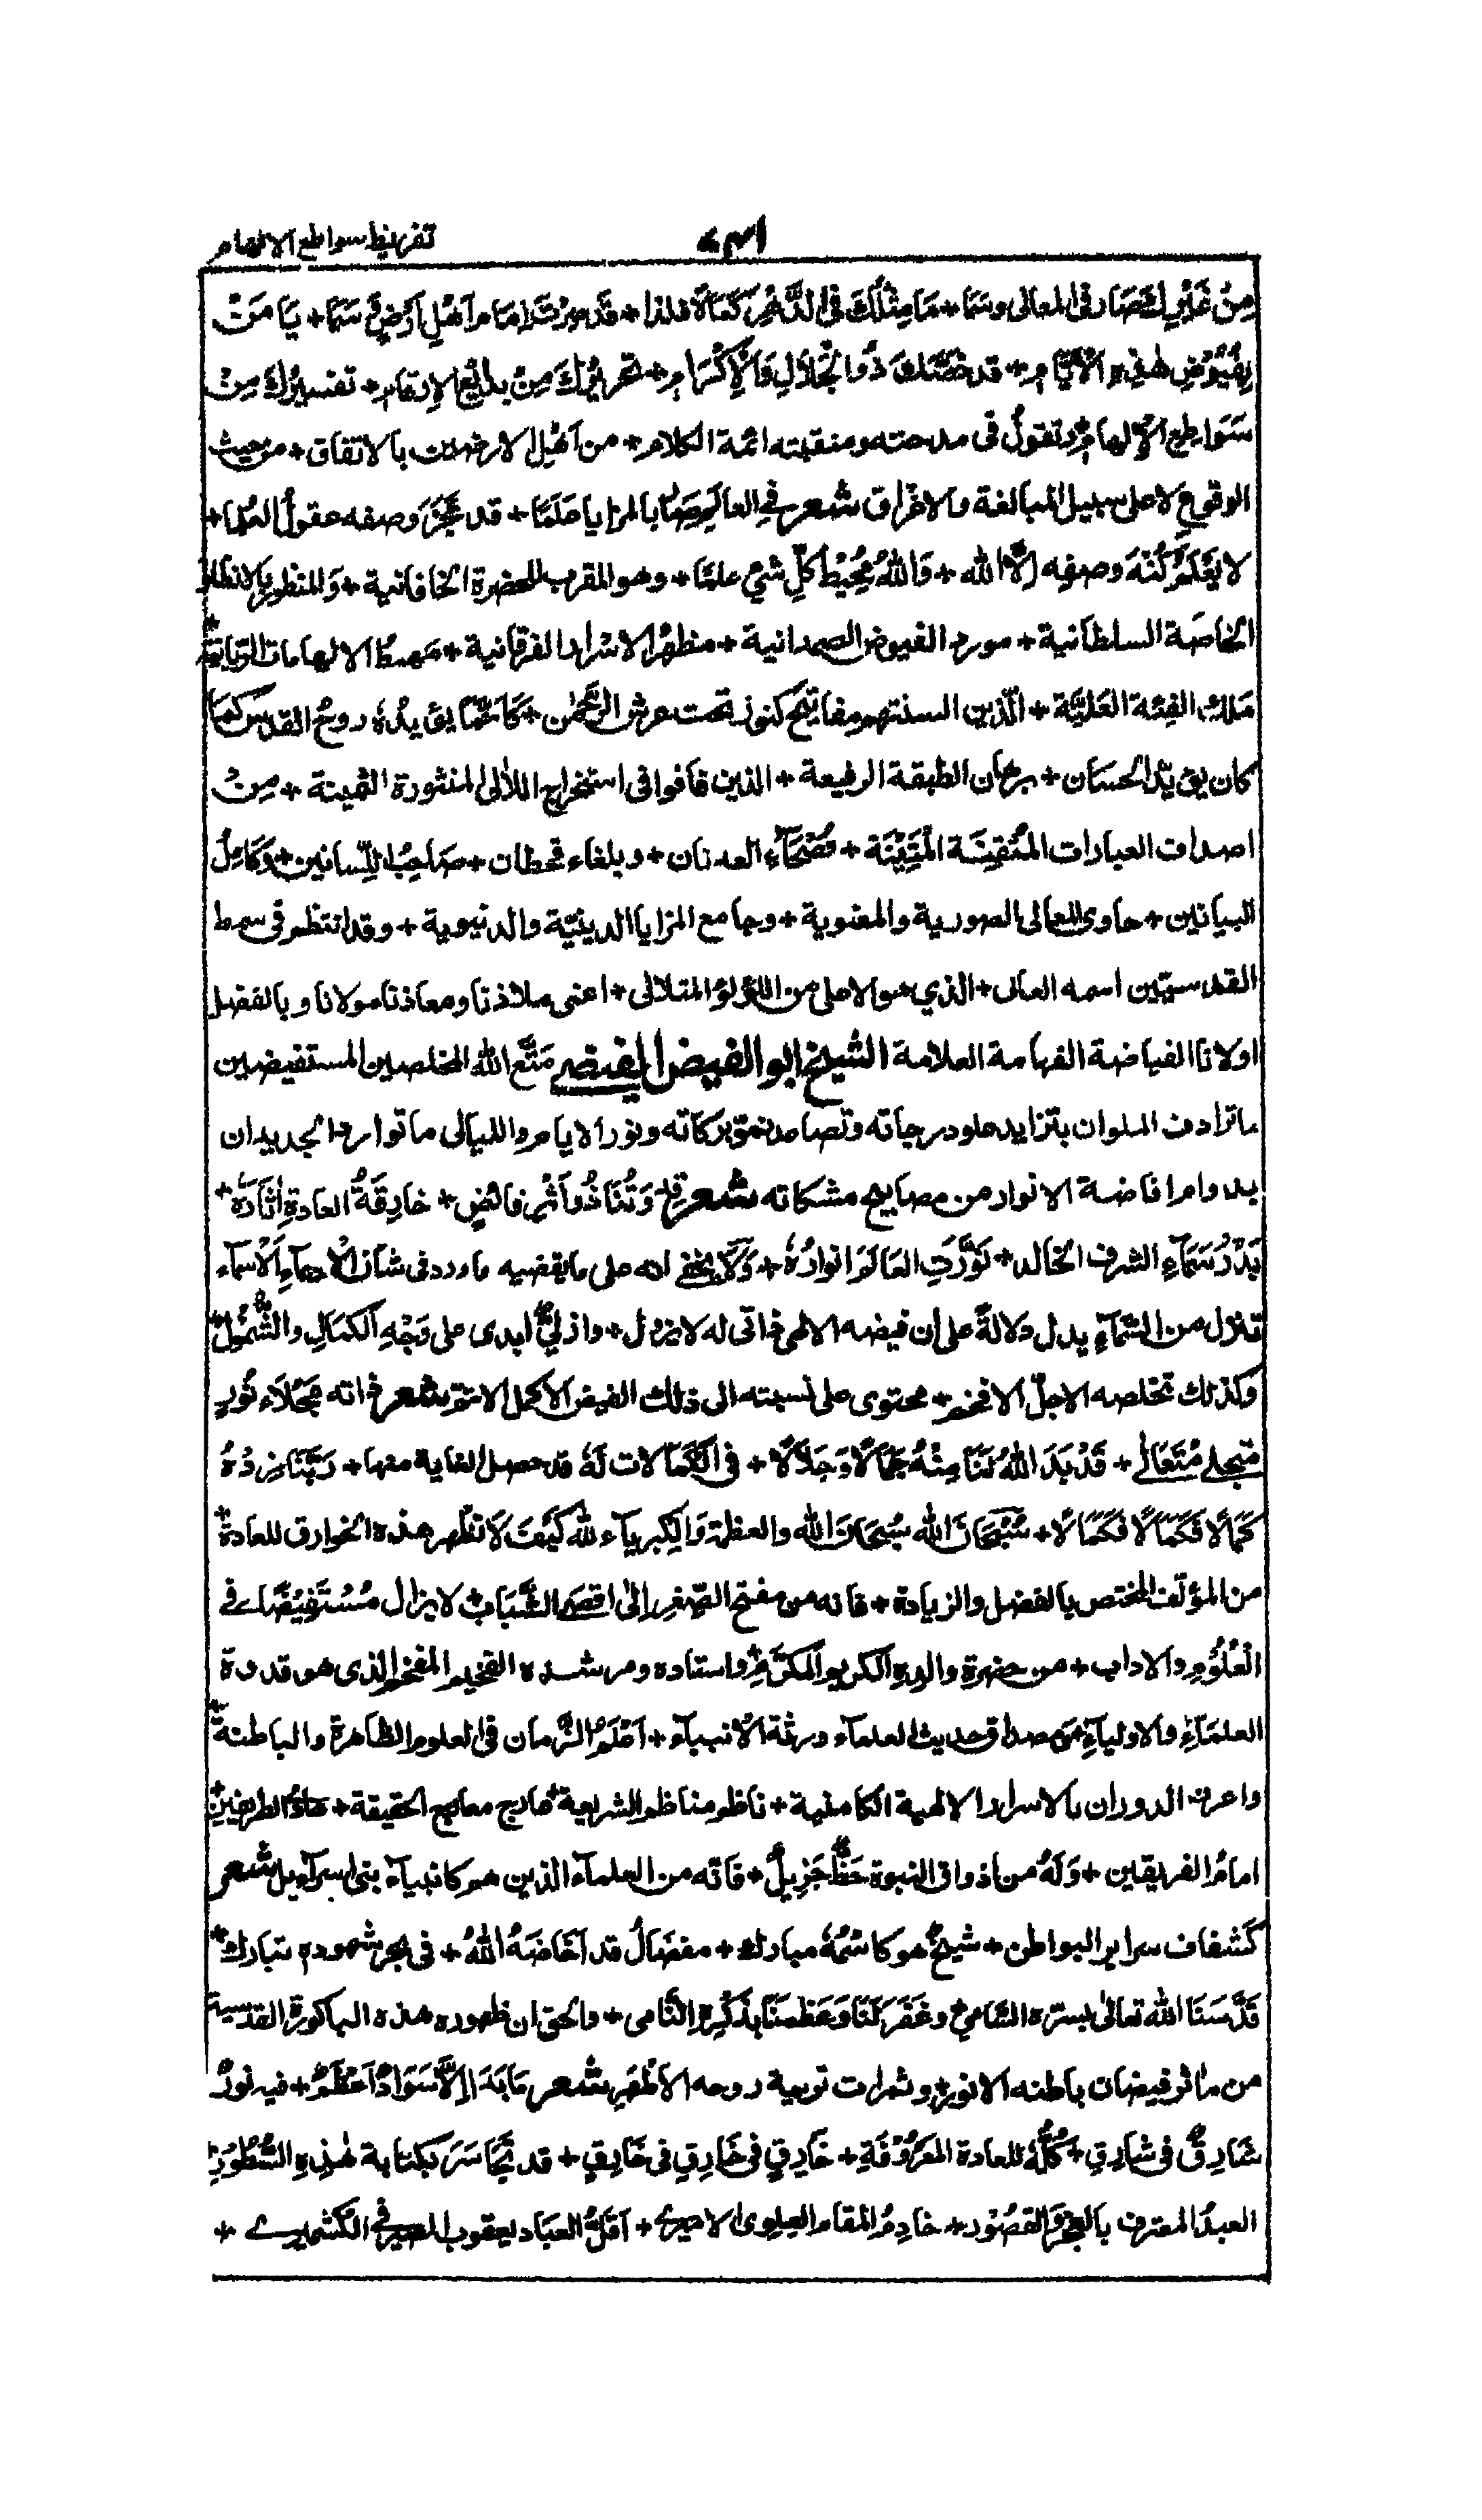 تقريظ سواطع الالهام
مِنْ غَيْرِكَ صَارَ فى المعالى وسَمَا + مَا مِثْلُكَ فى الدَّهْرِ كَمَالًا فلذا + قَد صِرْتَ اِمَامًا مِ اَهْلِ اَرْضٍ وَّ سَمَا + يَا مَنْ
بِفُيُوْضِ هٰذِهِ الْاَيَّامِ + قد خَصَّكَ ذُو الْجَلَالِ وَالْاِكْرَامِ + تحريرُكَ مِنْ بدائِعِ الارقامِ + تفسيرُكَ مِنْ
سَوَاطِعِ الْاِلهامِ + وتقولُ فى مدحته ومنقبته ائمة الكلام + من اَهْلِ الارضين بالاتفاق + من حيث
الوقوعِ لا على سبيل المبالغة والاغراق شعر فى العالَمِ صَارَ بالمزايا عَلَمًا + قد عَجَزَ وصفه عقولُ العُلما +
لا يَعْلَمُ كُنْهَ وصفِه اِلَّا الله + وَاللهُ مُحِيْطُ كلِّ شىء علمًا + وهو المقرب للحضرة الخاقانية + وَالمنظور بالانظار
الخاصَة السلطانية + مورد الفيوض الصمدانية + مظهرُ الاسْرار الفرقانية + مَهبطُ الالهامات الربانية +
مَلِك الفِئة العَلِيَّة + الّذين السنتهم مفاتيح كنوز تحت عرش الرَّحْمٰن + كَاَنَّمَا يؤيدُهٗ روحُ القدس كمَا
كان يؤيّد الحسَان + برهان الطبقة الرفيعة + الذين فاقوا فى استخراج اللاٰلى المنثورة الثمينة + مِنْ
اصداف العبارات المُتْقِنَة الْمَتِيْنَة + فُصْحَاءَ العدنان + وبلغاء قحطان + صَاحِبُ اللِّسانين + وَكَامِلُ
البيانين + حاوى المعالى الصورية والمعنوية + وجامع المزايا الدينيّة والدنيوية + وقد انتظم فى سمط
القدسيّين اسمه العالى + الذي هو الاعلى من اللؤلؤ المتلالى + اعنى ملاذنا ومعاذنا مولانا وبالفضل
اولانا الفياضة الفهامة العلامة الشيخ ابو الفيض الفيضى مَتَّع الله المخلصين المستفيضين
ما ترادف الملوان بتزايد علو درجاته وتصاعد نموّ بركاته ونور الايام والليالى ما توارد الجديدان
بدوام افاضة الانوار من مصابيح مشكاته شعر قِدْوَتُنَا ذُو اَثْرٍ فائضٍ + خارِقَةُ العادةِ اٰثارُهٗ +
بَدْرُ سَمَاءِ الشرف الخالد + نَوَّرَتِ العَالَمَ انوارُهٗ + وَلَا يخفى انه على ما يقتضيه ما ورد فى شان الاسماءِ اَلْاسماء
تنزل من السَّمآءِ يدل دلالةً على ان فيضه الالهى ذاتى له لا يزول + وازلىٌّ ابدى على وَجْهِ الكمَالِ والشُّمُوْلِ +
وكذلك تخلصه الاجلّ الافخم + محتوى على نسبته الى ذلك الفيض الاكمل الاتم شعر ذاته مَجْلَاء نُورٍ
متجلى مُتَعَالى + قَدْ بَدَ اللهُ لَنَا مِنْهُ جَمَالًا وَجَلَالًا + فى الكَمَالات لَهٗ قد حصل الغاية منها + رَبَّنَا زِدْهُ
كَمَالًا فَكَمَالًا فَكَمَالًا + سُبْحَانَ الله سُبحَانَ الله والعظمة وَالكِبرياء لله كَيْفَ لَا تظهر هذه الخوارق للعادة +
من المؤلّف المختص بالفضل والزيادة + فانه من مفتح الصّغر اِلٰى اقصَى الشَّبَاب لا يزال مُسْتَفِيْضًا فى
الْعُلُوْمِ والاداب + من حضرة والده الكريم المكرَّمِ + واستاده ومرشده الفخيم المفخم الذى هو قدوة
العلمَآءِ والاوليآءِ مَن صداق حديث العلماء ورثة الْانبيآء + اَعْلَمُ الزَّمان فى العلوم الظاهرة والباطنة +
واعرف الدوران بالاسرار الالهية الكامنية + ناظم مناظم الشريعة + عارج معارج الحقيقة + هَادُ الطريقين +
امامُ الفريقين + وَلَهُ من اذواق النبوة حَظٌّ جَزِيلٌ + فَانّه من العلمآء الذين هم كانبيآء بنى اسرآءيل شعر
كَشفاف سراير البواطن + شيخٌ هو كَاسْمُهٗ مبارك + مفضَالٌ قد اَفَاضَهُ اللهُ + فى بحر شهوده تبارك +
قَدَّسَنَا الله تعالٰى بسرّه السَّامِىْ وغَفَرَ لَنَا وَعَظمنَا بِذَكْرِهِ النَّامى + والحق ان ظهوره هذه الباكورة القدسية
من ماٰثر فيضان باطنه الانور + وثمرات تربية روحه الاَطْهَرِ شعر مَا بَدَ اِلَّا سَوَادٌ اَعْظَمُ + فيه نورٌ
شَارِقٌ فى شَارِقِ + كُلُّهٗ للعادة المَعْرُوْفَةِ + خَارِقٍ فى خَارِقٍ فى خَارِقٍ + قد تَجَاسَرَ بكتابة هٰذِهِ السُّطُوْرِ +
العبدُ المعترف بالعجز والقصُوْر + خادِمُ المقام العِلوى الاميرى + اَقَلُّ العباد يعقوب الصيرفى الكشميرى +